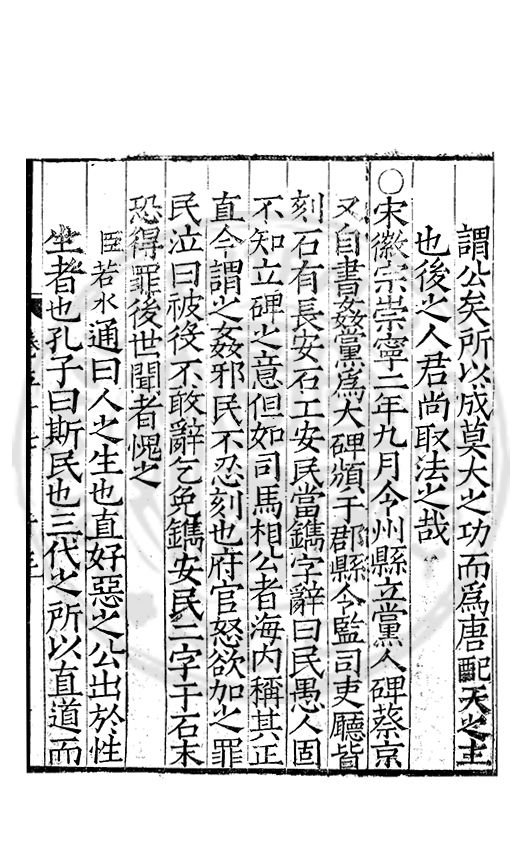 謂公矣所以成莫大之功而爲唐配天之主
也後之人君尚取法之哉
○宋徽宗崇寧二年九月令州縣立黨人碑蔡京
又自書姦黨爲大碑頒于郡縣令監司吏廳皆
刻石有長安石工安民當鐫字辭曰民愚人固
不知立碑之意但如司馬相公者海内稱其正
直今謂之姦邪民不忍刻也府官怒欲加之罪
民泣曰被役不敢辭乞免鐫安民二字于石末
恐得罪後世聞者愧之
臣若水通曰人之生也直好惡之公出於性
生者也孔子曰斯民也三代之所以直道而